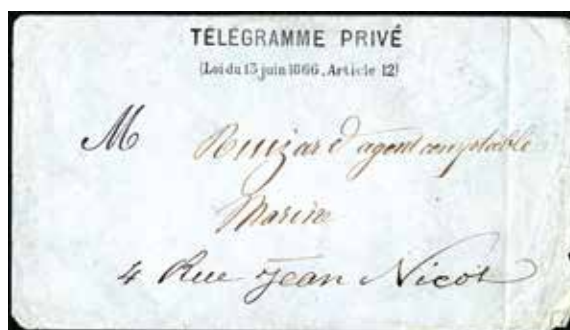 TÉLÉGRAMME PRIVÉ
(Loi du 13 juin 1866, Article 12)
M agent comptable
Marine
4 Rue Jean Nicot